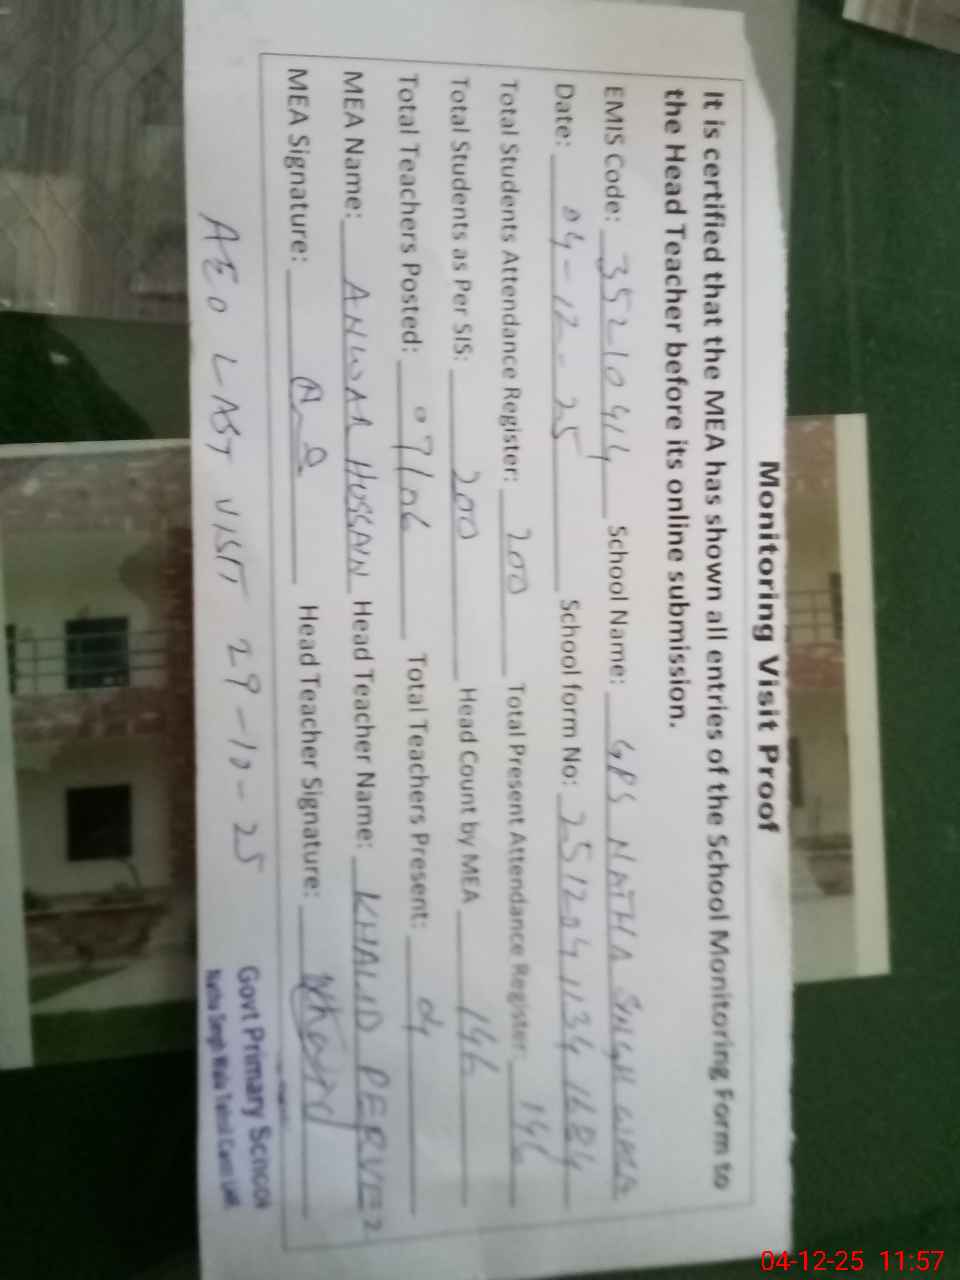 Monitoring Visit Proof
It is certified that the MEA has shown all entries of the School Monitoring Form to
the Head Teacher before its online submission.
EMIS Code: 35210414 School Name: GPS NATHA SINGH WALA
Date: 04-12-25 School form No: 25120411341684
Total Students Attendance Register: 200 Total Present Attendance Register: 146
Total Students as Per SIS: 200 Head Count by MEA 146
Total Teachers Posted: 07/06 Total Teachers Present: 04
MEA Name: ANWAR HUSSAIN Head Teacher Name: KHALID PERVEZ
MEA Signature: Head Teacher Signature:
AEO LAST VISIT 29-10-25
Govt Primary School
Natha Singh Wala Tehsil Cantt
04-12-25 11:57